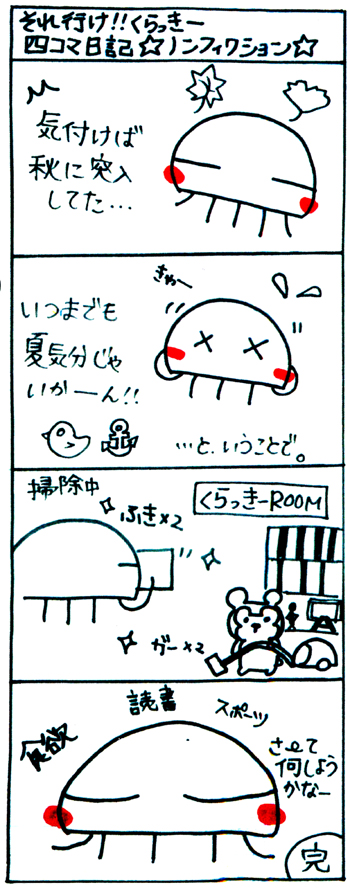 それ行け!!くらっきー
四コマ日記☆ノンフィクション☆
気付けば
秋に突入
してた…
きゃー
いつまでも
夏気分じゃ
いかーん!!
…と、いうことで。
掃除中
ふき×2
くらっきーROOM
ガー×2
食欲
読書
スポーツ
さーて
何しよう
かなー
完